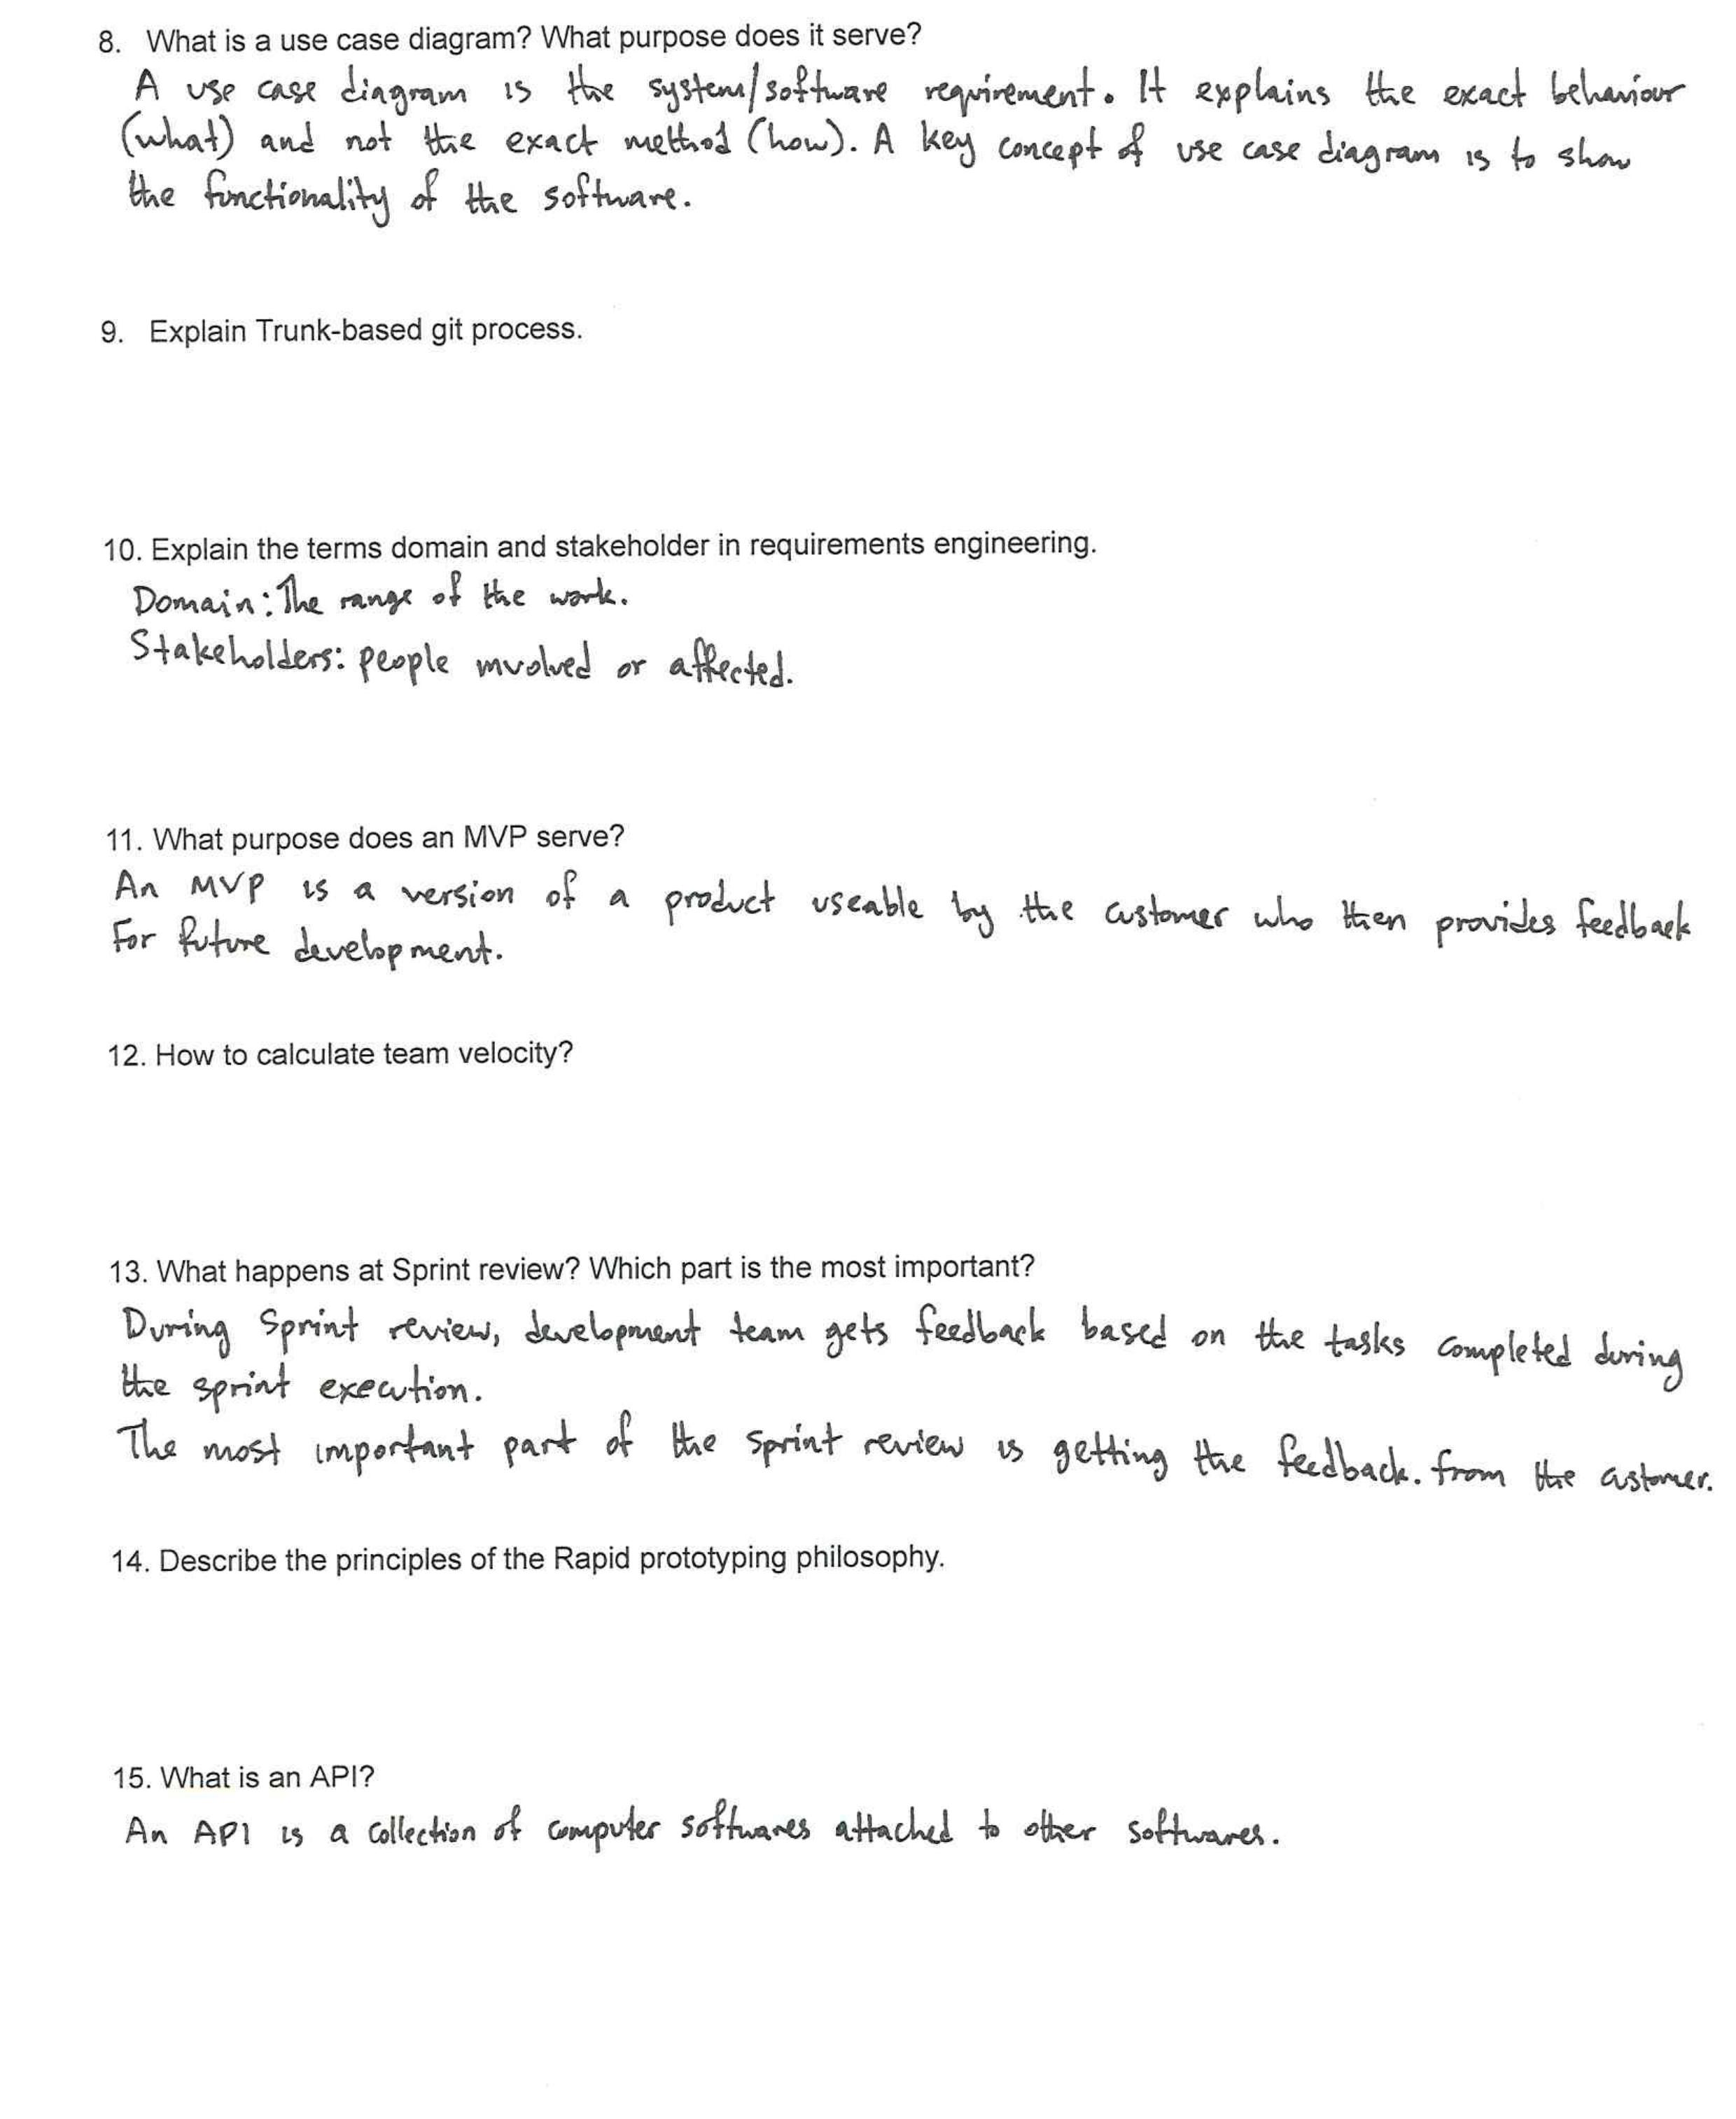 8. What is a use case diagram? What purpose does it serve?
A use case diagram is the system/software requirement. It explains the exact behaviour
(what) and not the exact method (how). A key concept of use case diagram is to show
the functionality of the software.
9. Explain Trunk-based git process.
10. Explain the terms domain and stakeholder in requirements engineering.
Domain: The range of the work.
Stakeholders: people involved or affected.
11. What purpose does an MVP serve?
An MVP is a version of a product useable by the customer who then provides feedback
For future development.
12. How to calculate team velocity?
13. What happens at Sprint review? Which part is the most important?
During Sprint review, development team gets feedback based on the tasks completed during
the sprint execution.
The most important part of the sprint review is getting the feedback. from the customer.
14. Describe the principles of the Rapid prototyping philosophy.
15. What is an API?
An API is a collection of computer softwares attached to other softwares.